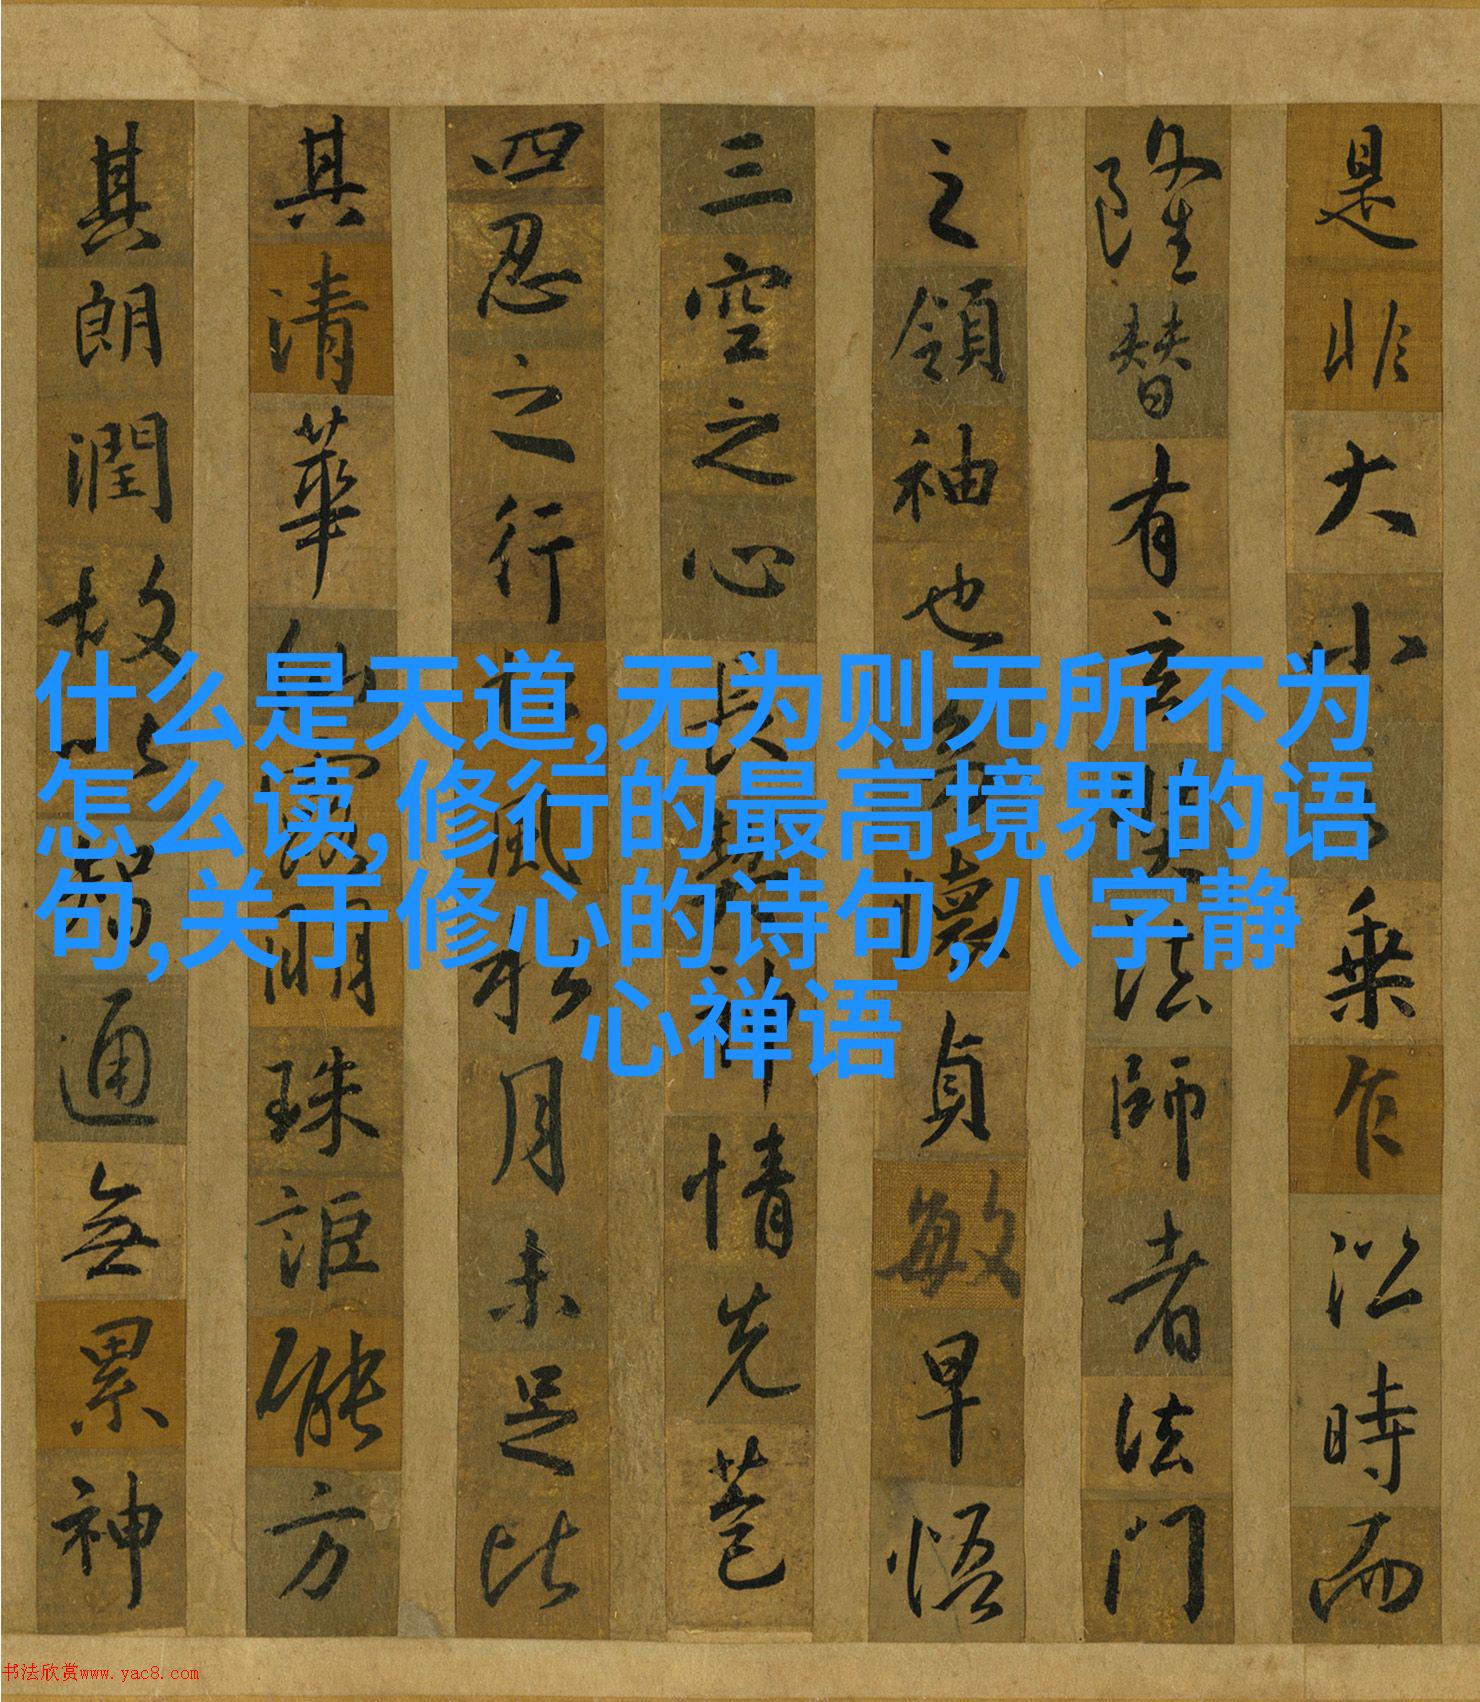 什么是天道,无为则无所不为
怎么读,修行的最高境界的语
句,关于修心的诗句,八字静
心禅语
是非大小乘乍沿時而
隆替有玄奘法師者法門
之領袖也懷貞敏早悟
三空之心長契神情先苞
四忍之行風月未足比
其清華仙露明珠詎能方
其朗潤故以智通無累神
书法欣赏www.yac8.com